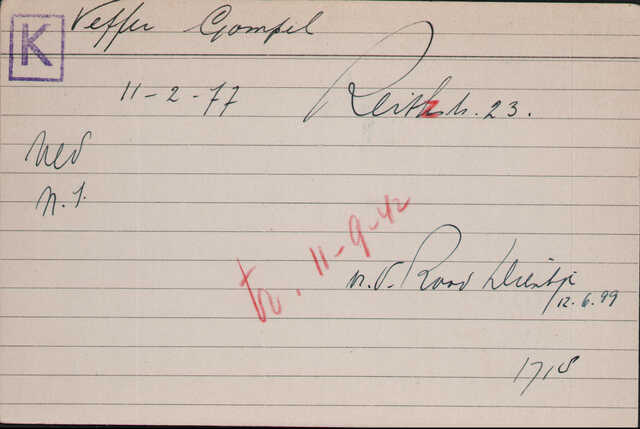 K Veffer Gompel
11-2-77 Reitzstr. 23.
Ned
N.I.
tr. 11-9-42
v.d. Roov Dientje
12.6.99
1718